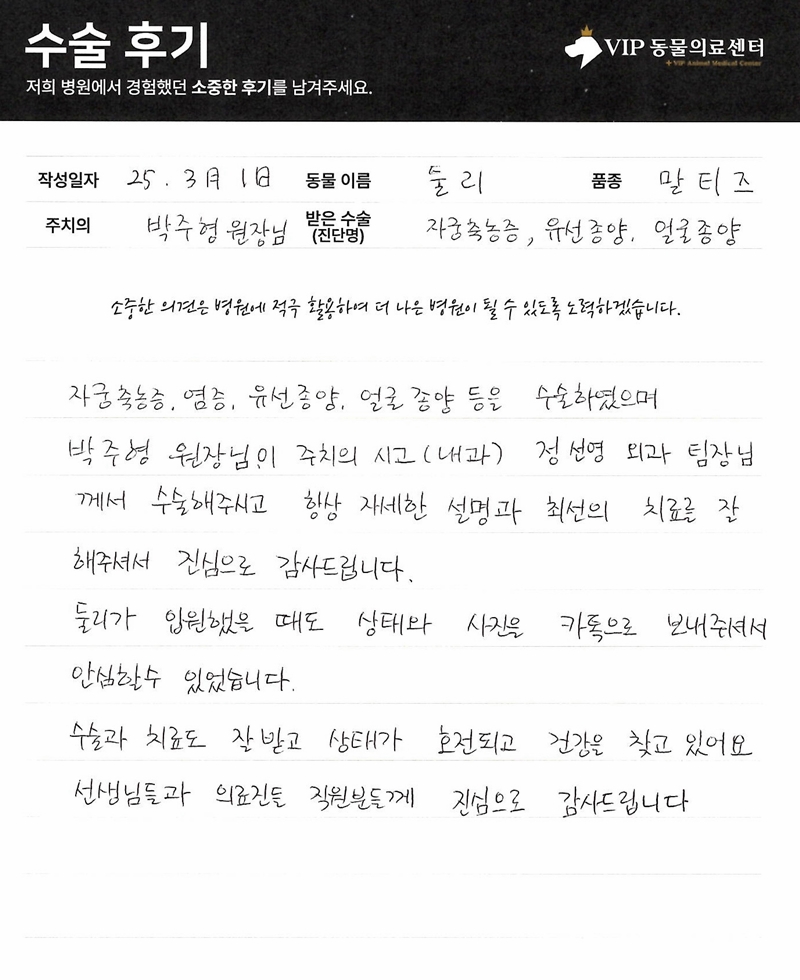 수술 후기
저희 병원에서 경험했던 소중한 후기를 남겨주세요.
VIP 동물의료센터
+ VIP Animal Medical Center
작성일자 25. 3月 1日 동물 이름 둘리 품종 말티즈
주치의 박주형 원장님 받은 수술 (진단명) 자궁축농증, 유선종양. 얼굴종양
소중한 의견은 병원에 적극 활용하여 더 나은 병원이 될 수 있도록 노력하겠습니다.
자궁축농증, 염증, 유선종양, 얼굴 종양 등을 수술하였으며
박주형 원장님이 주치의 시고(내과) 정선영 외과 팀장님
께서 수술해주시고 항상 자세한 설명과 최선의 치료를 잘
해주셔서 진심으로 감사드립니다.
둘리가 입원했을 때도 상태와 사진을 카톡으로 보내주셔서
안심할수 있었습니다.
수술과 치료도 잘 받고 상태가 호전되고 건강을 찾고 있어요
선생님들과 의료진들 직원분들께 진심으로 감사드립니다